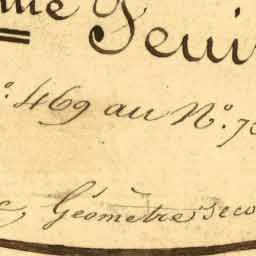 me Feui
o. 469 au No. 7
Géomètre seco